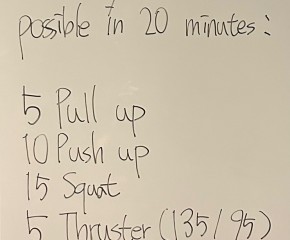 possible in 20 minutes:
5 Pull up
10 Push up
15 Squat
5 Thruster (135/95)